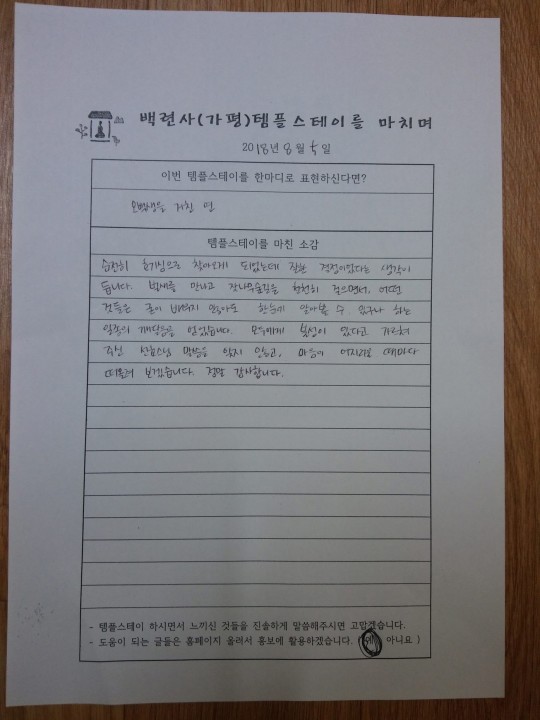 백련사(가평)템플스테이를 마치며
2018년 8월 5일
이번 템플스테이를 한마디로 표현하신다면?
오백생을 거친 연
템플스테이를 마친 소감
순전히 호기심으로 찾아오게 되었는데 잘한 결정이었다는 생각이
듭니다. 백세를 만나고 잣나무숲길을 천천히 걸으면서, 어떤
것들은 굳이 배우지 않아도 한눈에 알아볼 수 있구나 하는
일종의 깨달음을 얻었습니다. 모두에게 불성이 있다고 가르쳐
주신 스님 말씀을 잊지 않고, 마음이 어지러울 때마다
떠올려 보겠습니다. 정말 감사합니다.
- 템플스테이 하시면서 느끼신 것들을 진솔하게 말씀해주시면 고맙겠습니다.
- 도움이 되는 글들은 홈페이지 올려서 홍보에 활용하겠습니다. (예 아니요 )